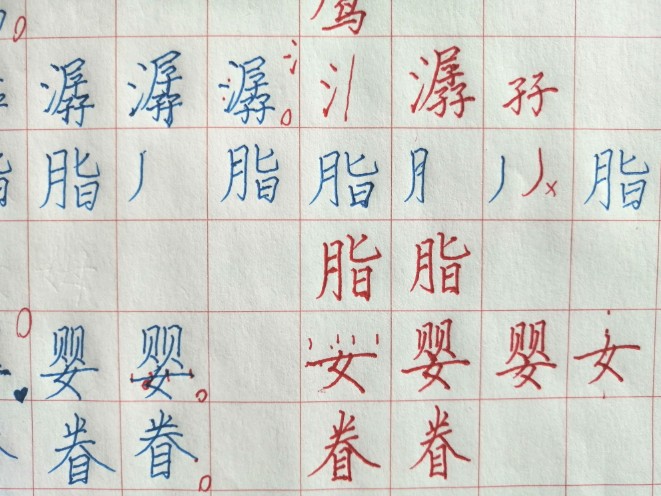 潺 潺 潺 氵 潺 孖
脂 丿 脂 脂 月 丿 丿 脂
脂 脂
婴 婴 女 婴 婴 女
眷 眷 眷 眷